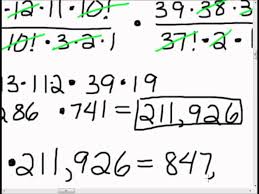 ·12·11·10! · 39·38·3
10!·3·2·1 37!·2·1
3·112·39·19
286 ·741=211,926
·211,926=847,